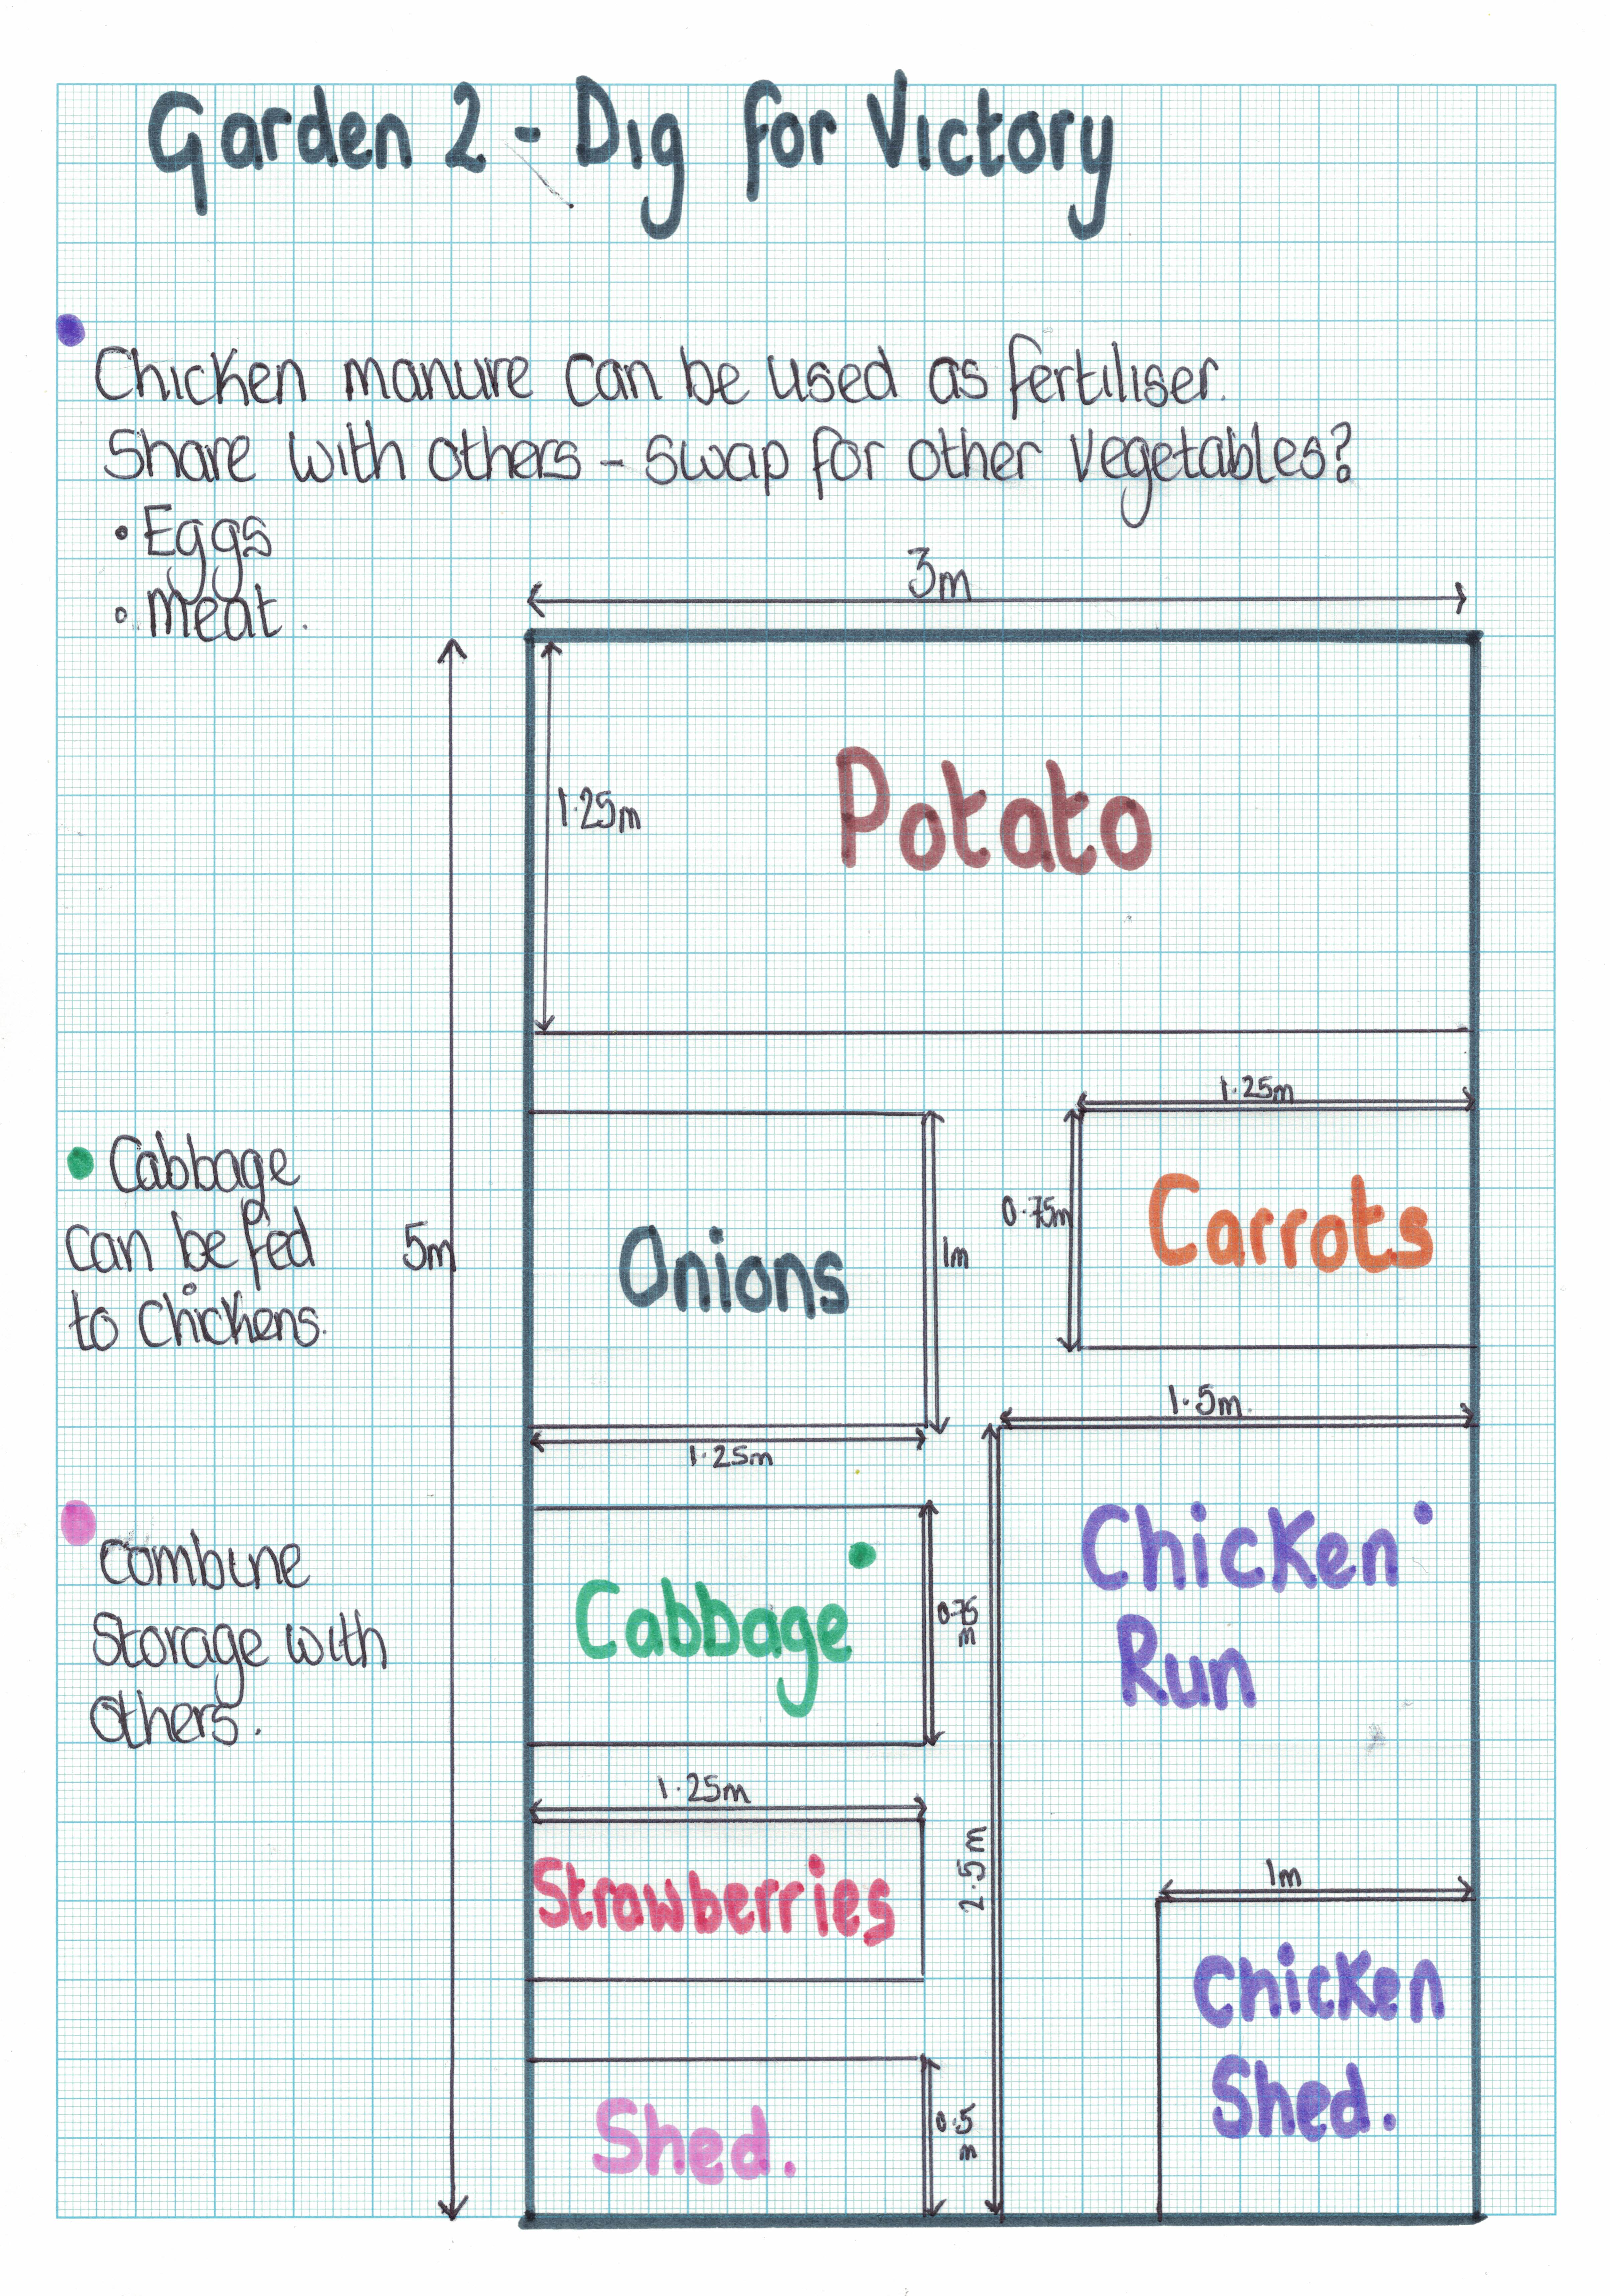 Garden 2 - Dig for Victory
Chicken manure can be used as fertiliser.
Share with others - swap for other vegetables?
• Eggs
• Meat.
3m
1.25m
Potato
1.25m
• Cabbage
can be fed
to chickens.
5m
Onions
1m
0.75m
Carrots
1.5m.
1.25m
Chicken
Run
• Combine
Storage with
others.
Cabbage
0.75
m
1.25m
Strawberries
2.5m
1m
Chicken
Shed.
Shed.
0.5
m